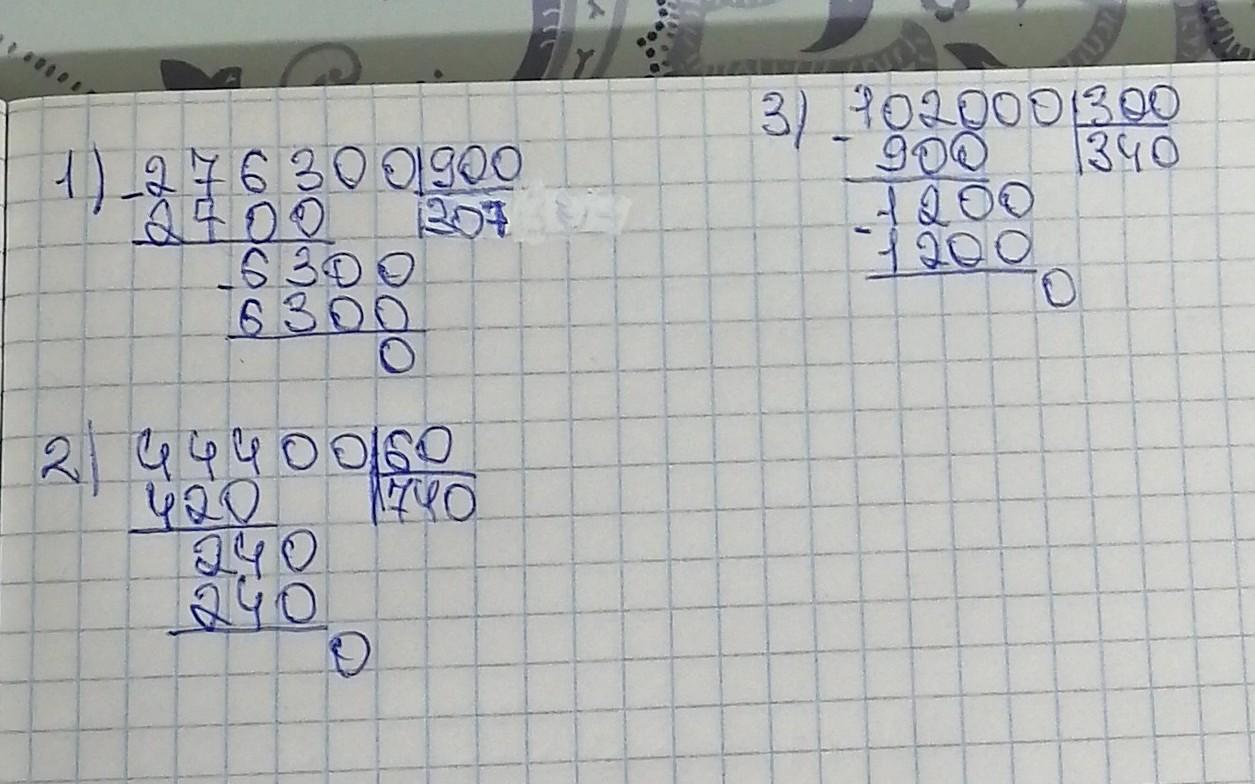 1) -276300|900
2700 |307
-6300
6300
0
2) 44400|60
420 |740
240
240
0
3) -102000|300
900 |340
-1200
1200
0